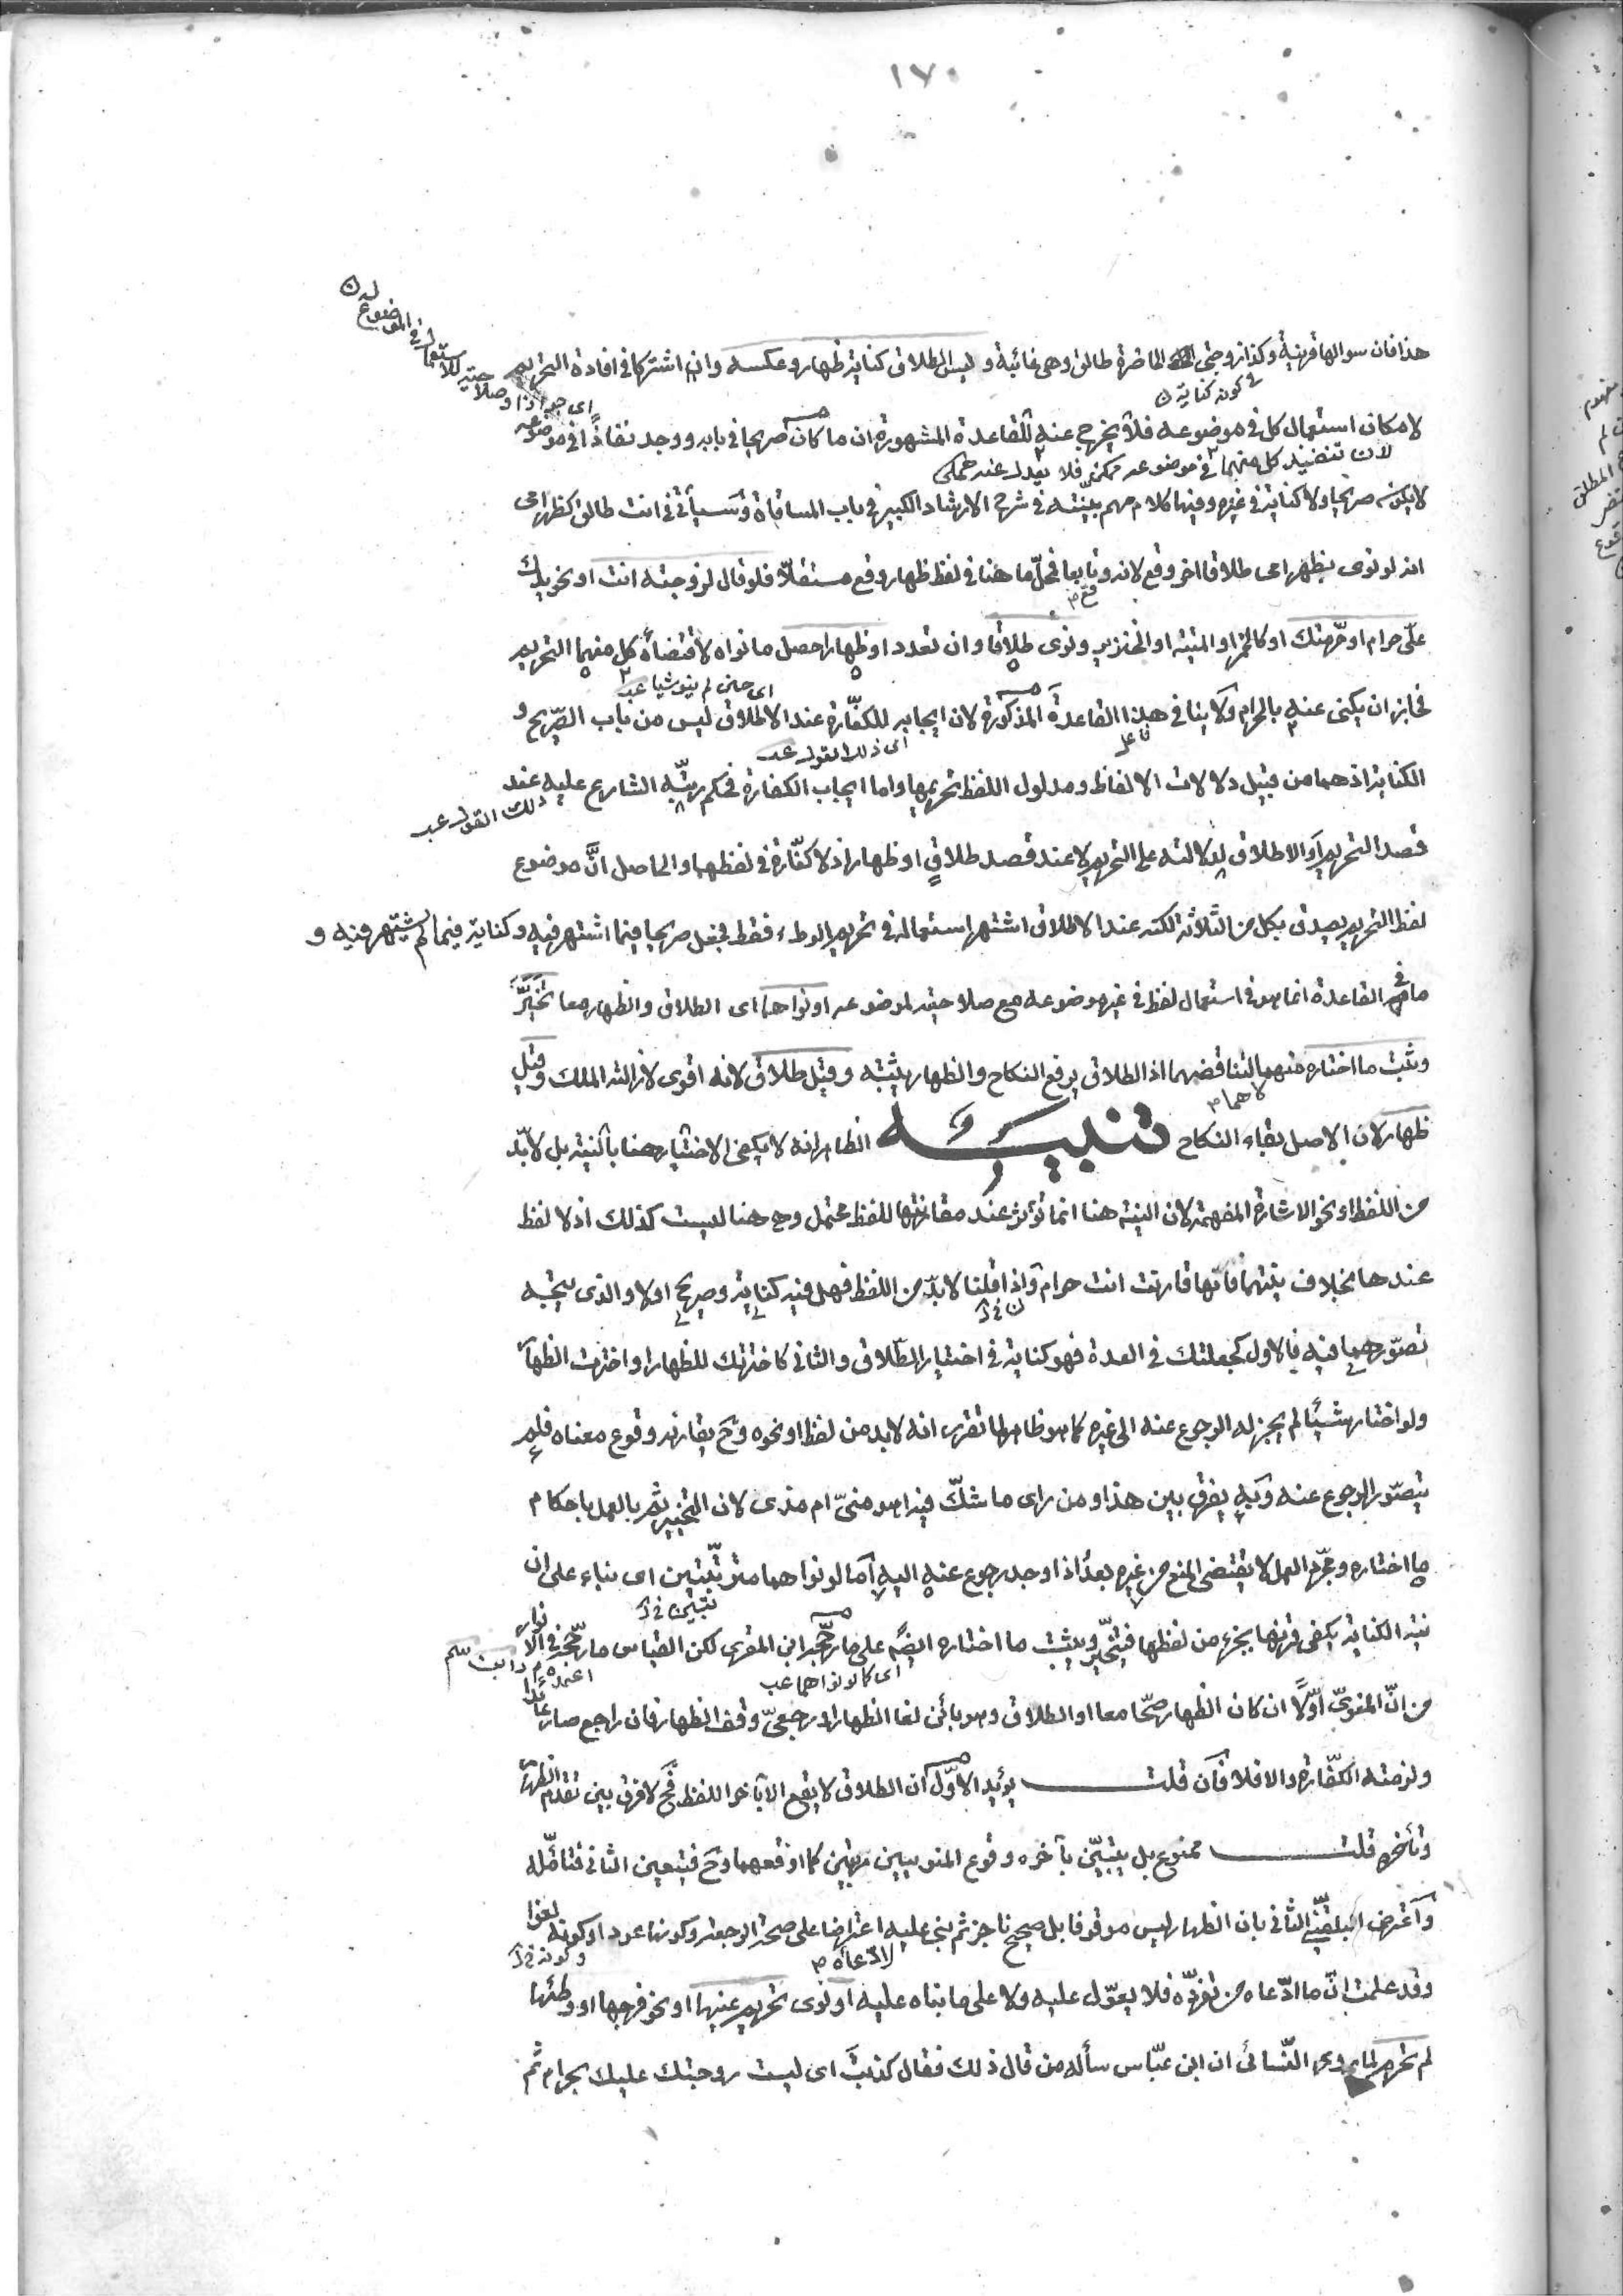 ١٧٠
هذا فان سوالها قرينة وكذا زوجتي الحاضرة طالق وهي غائبة وليس الطلاق كناية ظهار وعكسه وان اشتركا في افادة التحريم
لامكان استعمال كل في موضوعه فلا يخرج عنه للقاعدة المشهورة ان ما كان صريحا في بابه ووجد نفاذا في موضوعه
لان تنفيذ كل منهما في موضوعه ممكن فلا يعدل عنه
لا يكون صريحا ولا كناية في غيره وفيها كلام مهم بينته في شرح الارشاد الكبير في باب المساقاة وسيأتي في انت طالق كظهر امي
انه لو نوى بظهر امي طلاقا اخر وقع لانه وقع تابعا فمحل ما هنا في لفظ ظهار وقع مستقلا فلو قال لزوجته انت او نحو يدك
علي حرام او حرمتك او كالخمر او الميتة او الخنزير ونوى طلاقا وان تعدد او ظهارا حصل ما نواه لاقتضاء كل منهما التحريم
اي حين لم ينو شيا عب
فجاز ان يكنى عنه بالحرام ولا ينافي هذا القاعدة المذكورة لان ايجابه للكفارة عند الاطلاق ليس من باب الصريح و
اي ذلك القول عب
الكناية اذ هما من قبيل دلالات الالفاظ ومدلول اللفظ تحريمها واما ايجاب الكفارة فحكم رتبه الشارع عليه عند
ذلك القول عب
قصد التحريم او الاطلاق لدلالته على التحريم لا عند قصد طلاق او ظهار اذ لا كفارة في لفظهما والحاصل ان موضوع
لفظ التحريم يصدق بكل من الثلاثة لكنه عند الاطلاق اشتهر استعماله في تحريم الوطء فقط فجعل صريحا فيما اشتهر فيه وكناية فيما لم يشتهر فيه و
ما في القاعدة انما هو في استعمال لفظ في غير موضوعه مع صلاحيته لموضوعه او نواهما اي الطلاق والظهار معا تخير
وثبت ما اختاره منهما لتناقضهما اذ الطلاق يرفع النكاح والظهار يثبته وقيل طلاق لانه اقوى لازالته الملك وقيل
ظهار لان الاصل بقاء النكاح تنبيه الظاهر انه لا يكفي الاختيار هنا بالنية بل لا بد
من اللفظ او نحو الاشارة المفهمة لان النية هنا انما تؤثر عند مقارنتها للفظ محتمل وح هنا ليست كذلك اذ لا لفظ
عندها بخلاف نيتهما فانها قارنت انت حرام واذا قلنا لا بد من اللفظ فهل فيه كناية وصريح اولا والذي يتجه
تصورهما فيه فالاول كجعلتك في العدة فهو كناية في اختيار الطلاق والثاني كاخترتك للظهار او اخترت الظهار
ولو اختار شيئا لم يجز له الرجوع عنه الى غيره كما هو ظاهر لما تقرر انه لا بد من لفظ او نحوه وح يقارنه وقوع معناه فلم
يتصور الرجوع عنه وبه يفرق بين هذا ومن راى ما شك فيه اهو مني ام مذي لان التخيير ثم بالعمل باحكام
ما اختاره ومجرد العمل لا يقتضي المنع من غيره بعد اذا وجد رجوع عنه اليه اما لو نواهما مترتبين اي بناء على ان
نية الكناية يكفي قرنها بجزء من لفظها فيتخير ويثبت ما اختاره ايضا على ما رجحه ابن المقري لكن القياس ما رجحه في الانوار
اي كما لو نواهما عب
من ان المنوي اولا ان كان الظهار صحا معا او الطلاق وهو بائن لغا الظهار او رجعي وقف الظهار فان راجع صار عائدا
ولزمته الكفارة والا فلا فان قلت يؤيد الاول ان الطلاق لا يقع الا بآخر اللفظ فح لا فرق بين تقدم الظهار
وتأخره قلت ممنوع بل يتبين بآخره وقوع المنويين مرتبين كما اوقعهما وح فيتعين الثاني فتامله
واعترض البلقيني الثاني بان الظهار ليس موقوفا بل صحيح ناجز ثم بنى عليه اعتراضا على صحة الرجعة وكونها عودا وكونه لغوا
وقد علمت ان ما ادعاه من تفرده فلا يعول عليه ولا على ما بناه عليه او نوى تحريم عينها او نحو فرجها او وطئها
لم تحرم لما روى النسائي ان ابن عباس سأله من قال ذلك فقال كذبت اي ليست زوجتك عليك بحرام ثم